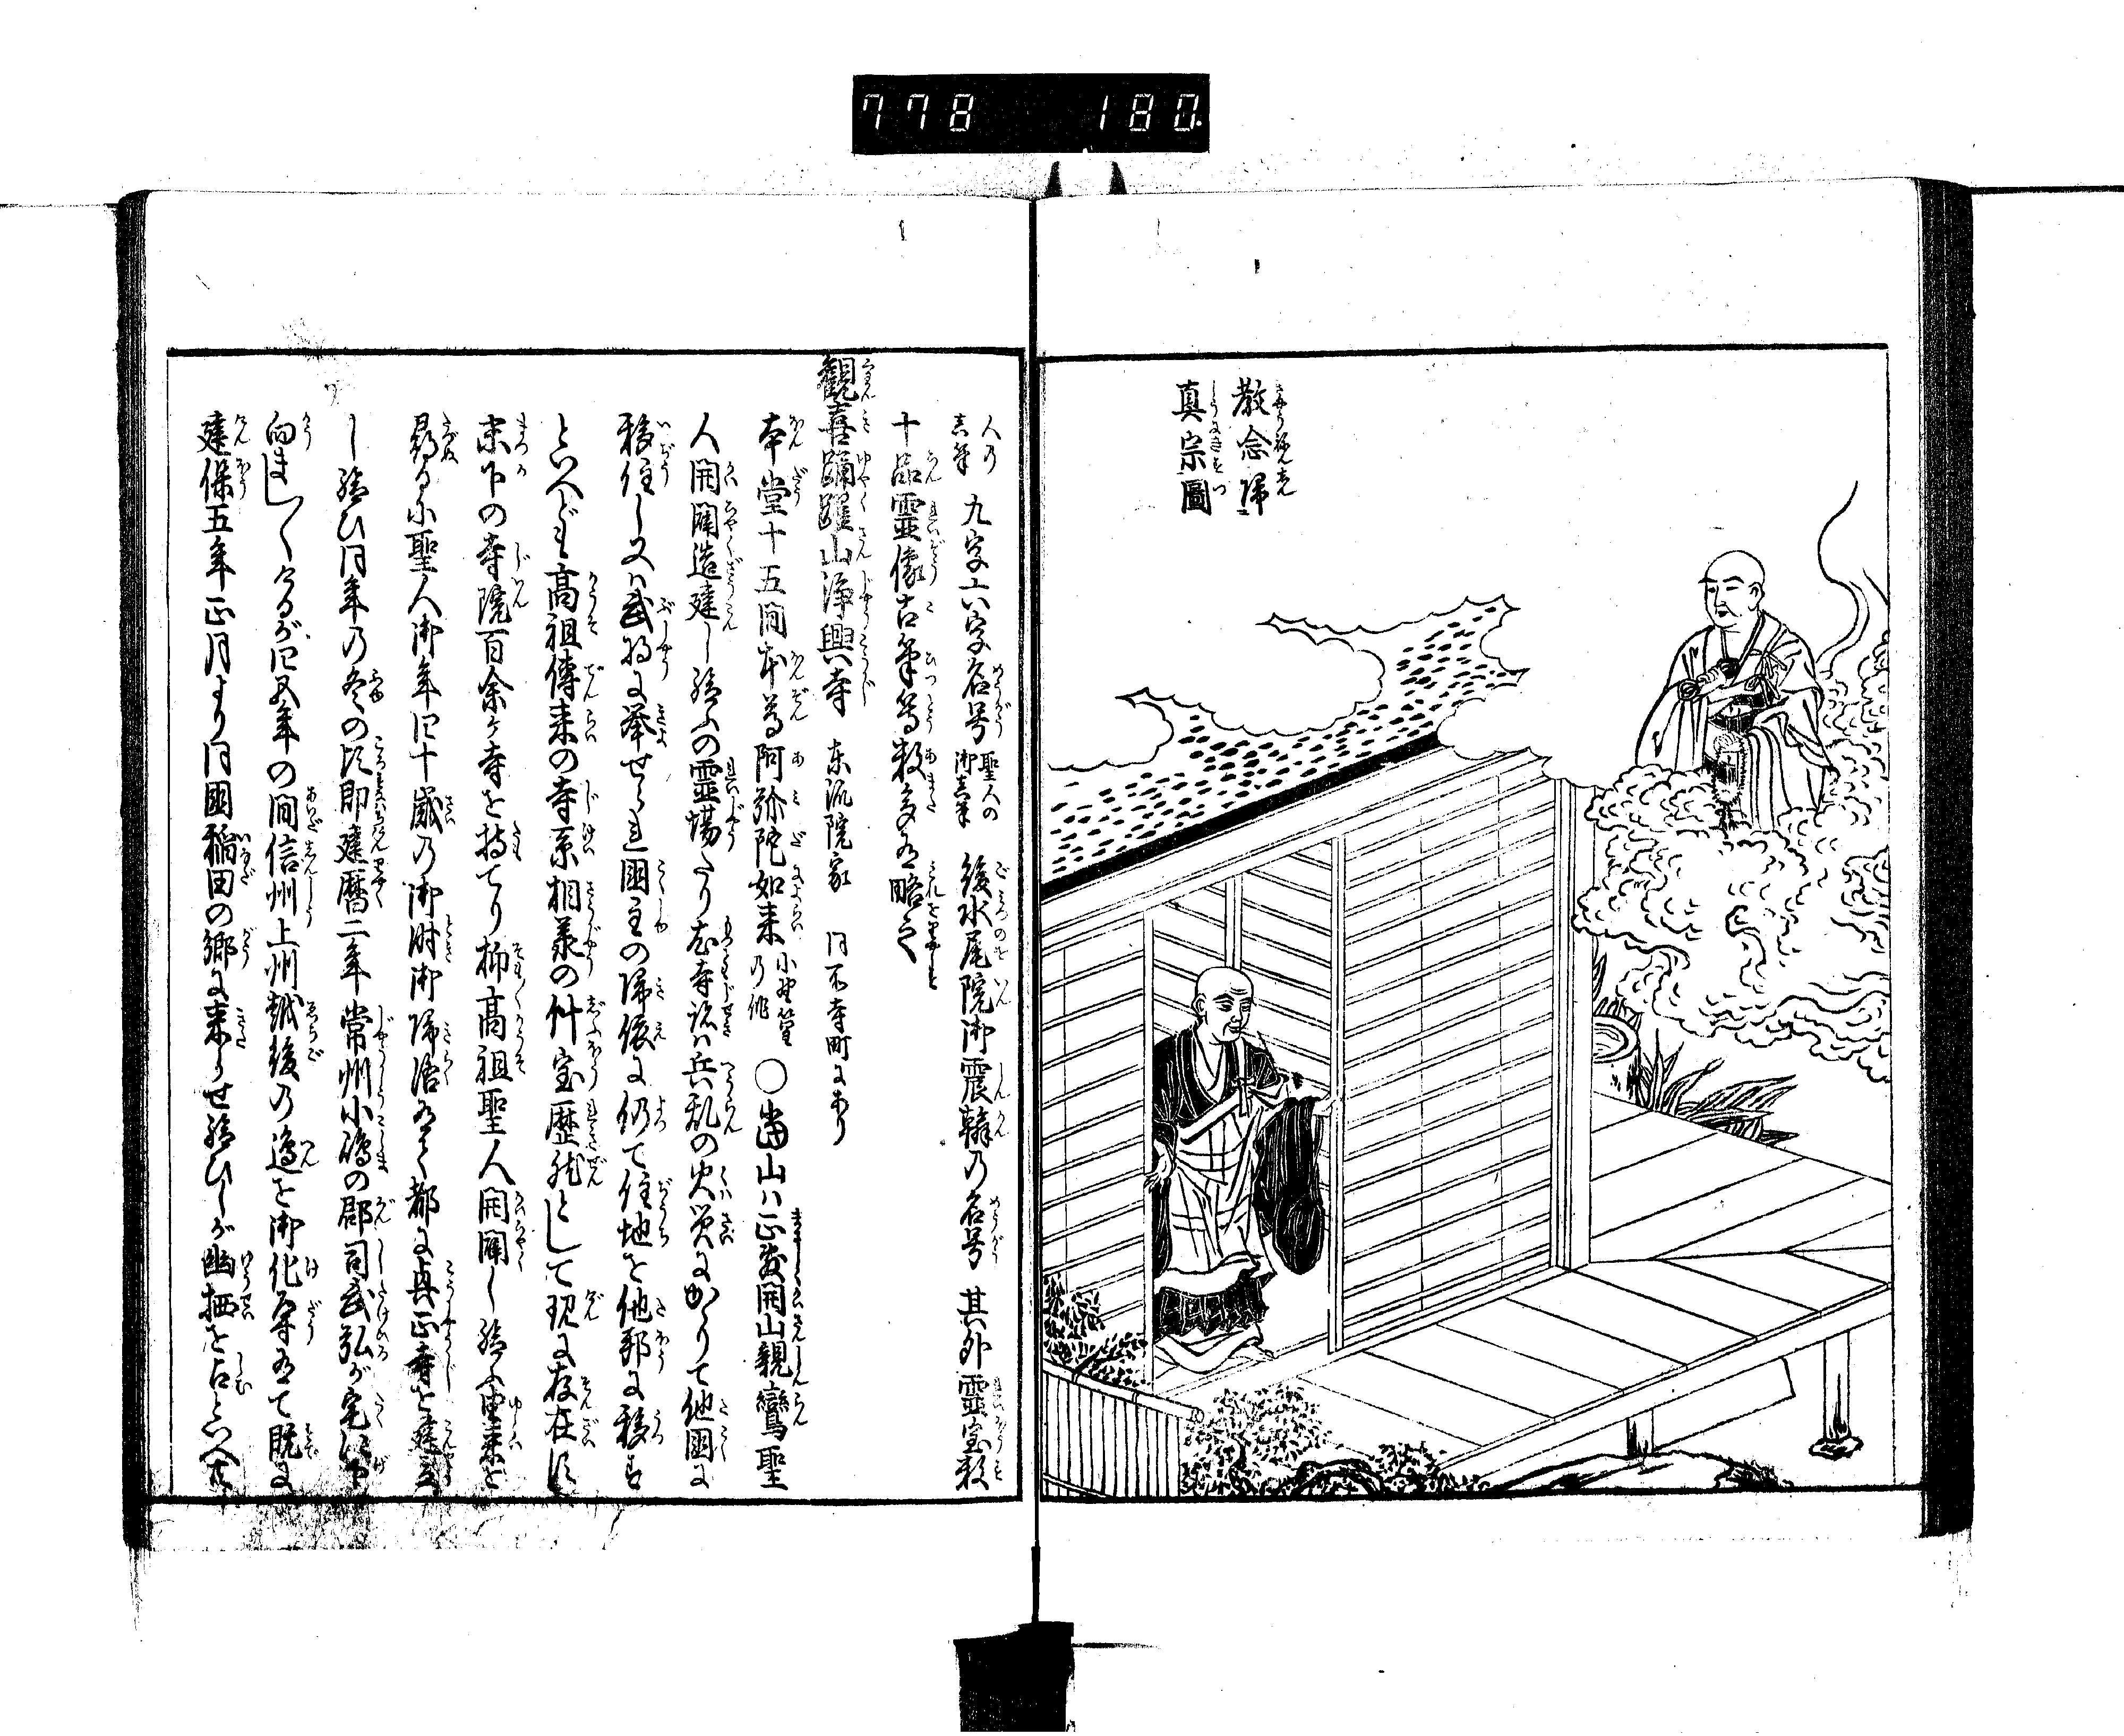 778 180
教念帰
真宗圖
人乃真筆 九字六字名号 聖人の御真筆 後水尾院御震翰乃名号 其外霊宝数
十品霊像古筆等数多有略之
觀喜踊躍山浄興寺 東派院家 同所寺町にあり
本堂十五間本尊阿弥陀如来 小野篁乃作 ○當山ハ正敷開山親鸞聖
人開闢造建し給ふの霊場たり 寺 ハ兵乱の火災にかゝりて他國に
移住し又ハ武将に挙せられ國主の帰依に仍て住地を他郡に移す
といへども高祖傳来の寺系相承の什宝歴然として現に存在す
末下の寺院百余ケ寺を持てり抑高祖聖人開闢し給ふ由来を
尋るに聖人御年四十歳乃御時御帰洛有て都に真正寺を建立
し給ひ同年乃冬の頃即建暦二年常州小嶋の郡司武弘が宅に下
向ましく けるが四五年の間信州上州越後乃邊を御化導有て既に
建保五年正月より同國稲田の郷に来らせ給ひしが幽栖を占といへ共